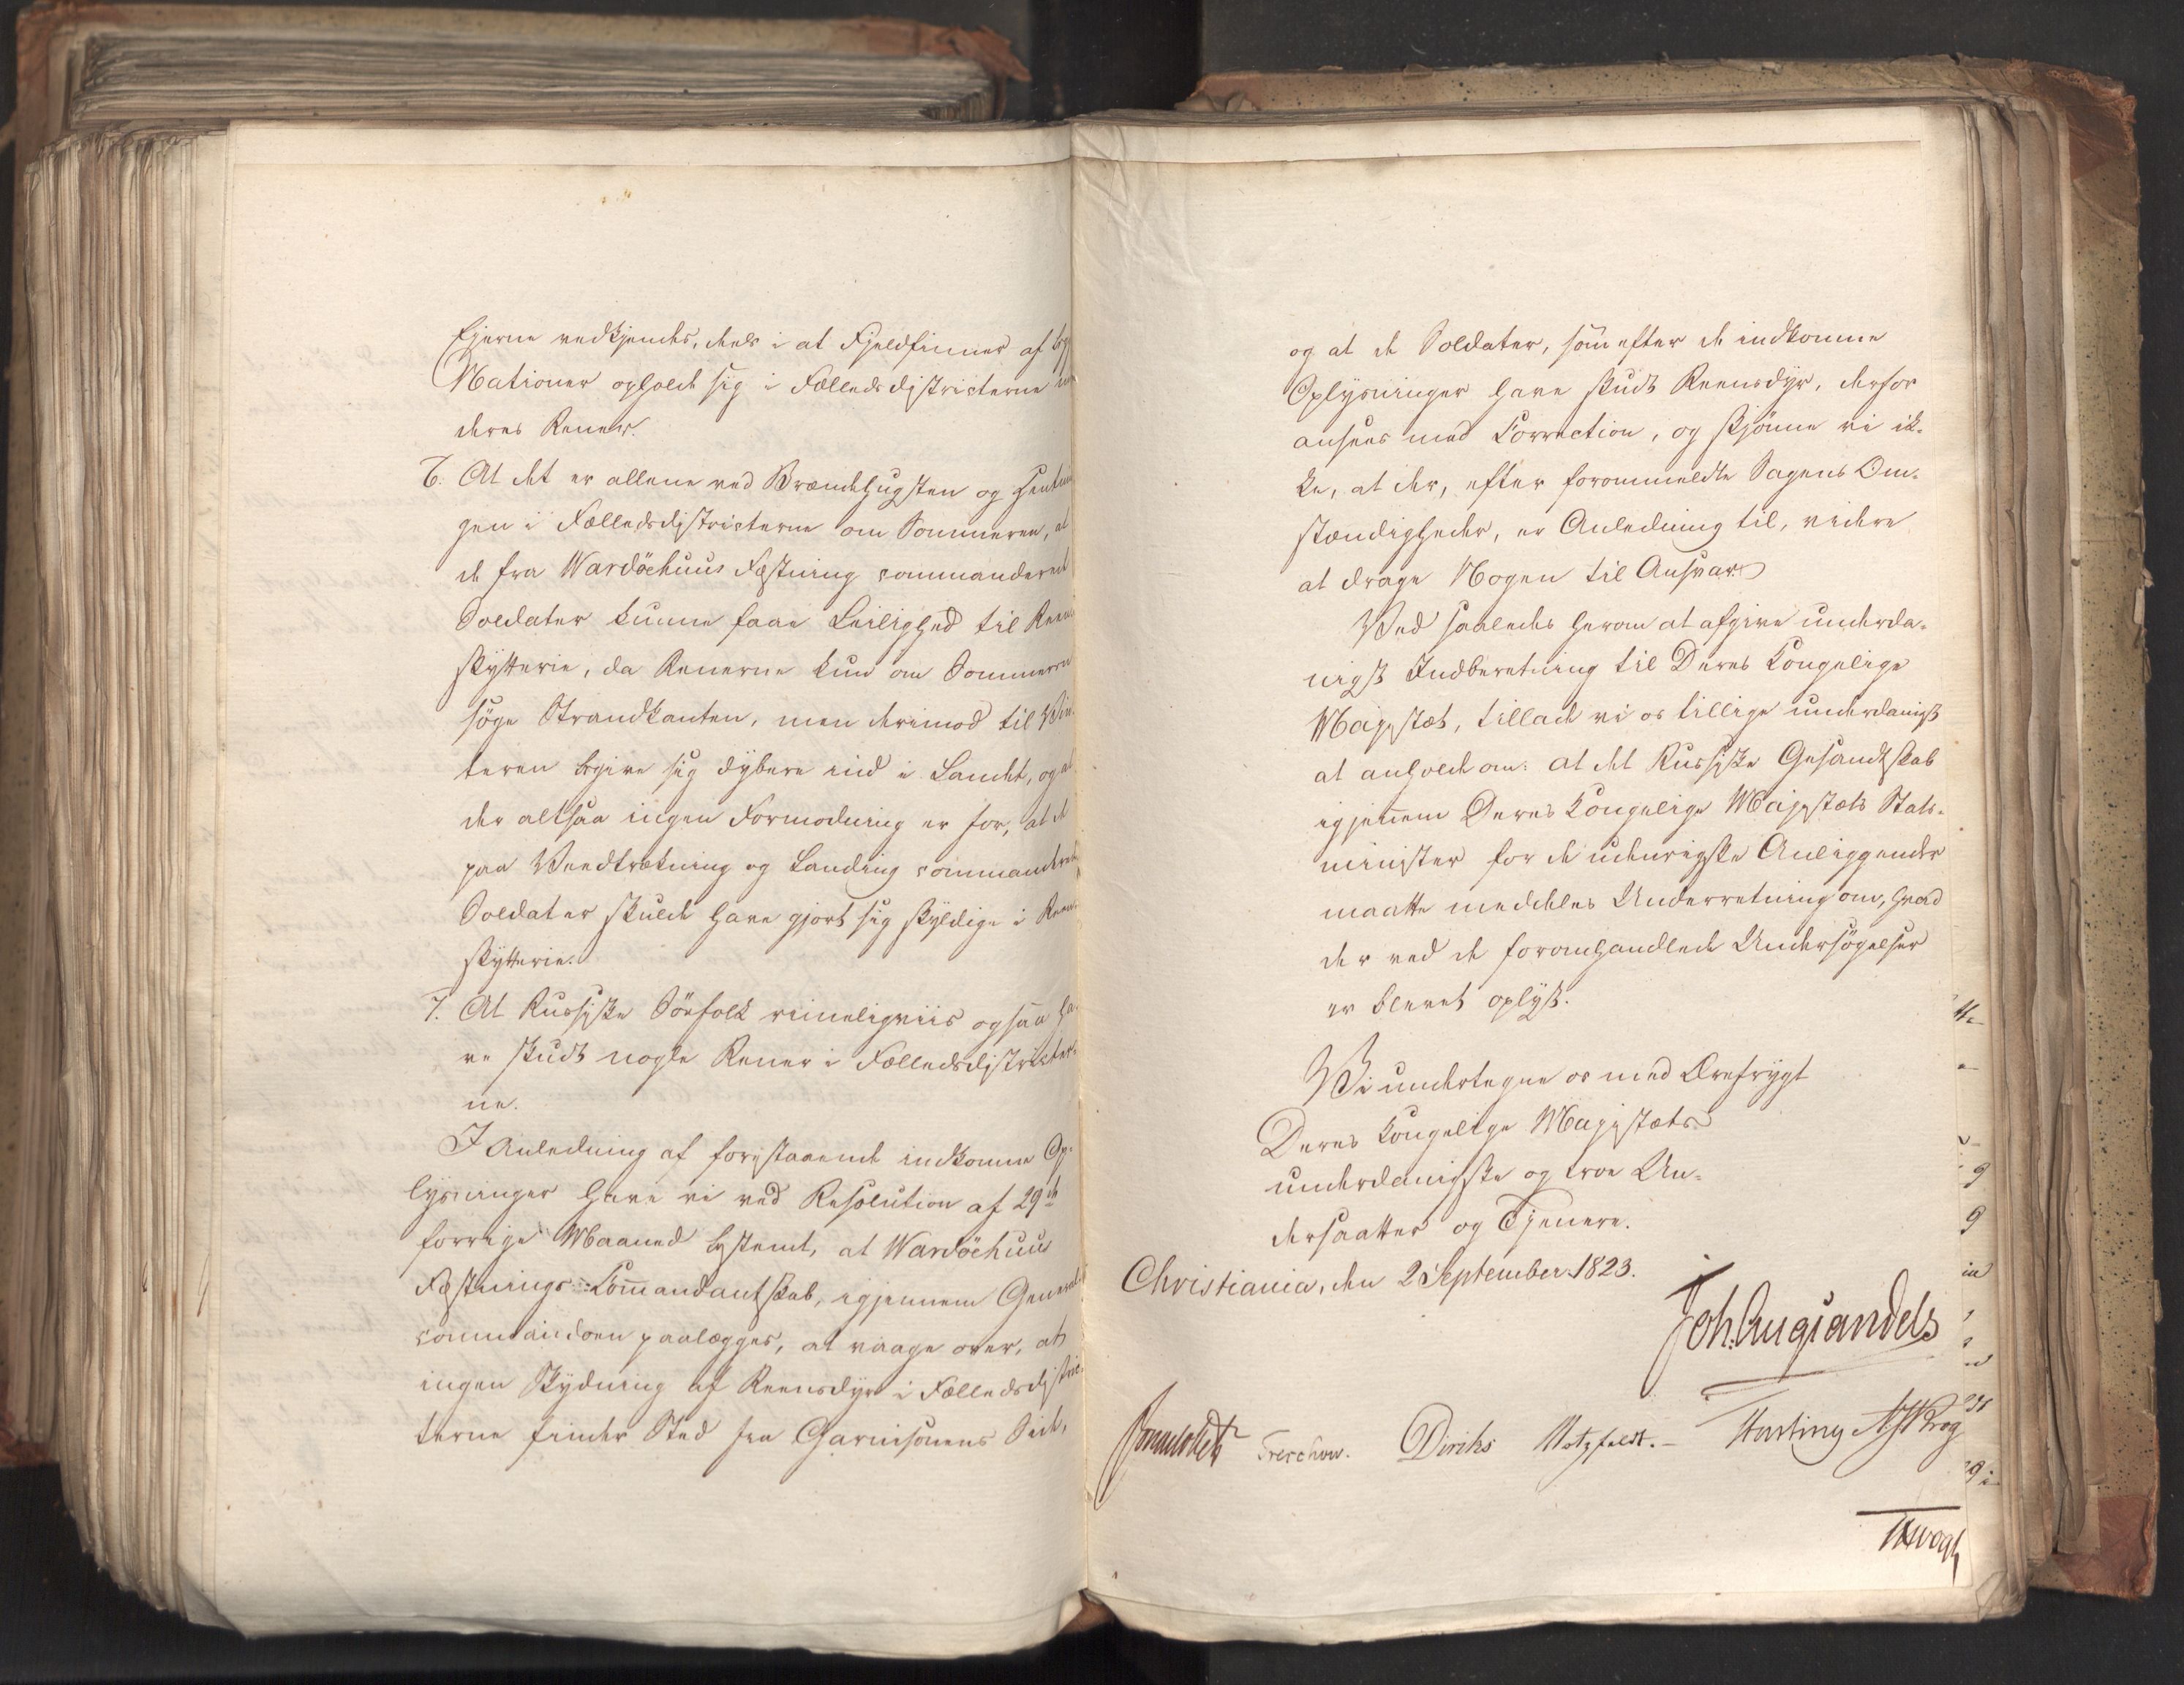 Ejerne vedkjendes, deels i at Fjeldfinner af begge
Nationer opholde sig i Fælledsdistricterne med
deres Rener.
6. At det er allene ved Brændehugsten og Hentnin
gen i Fælledsdistricterne om Sommeren, at
de fra Wardöehuus Fæstning commanderede
Soldater kunne faae Leilighed til Reens
skytterie, da Renerne kun om Sommeren
söge Strandkanten, men derimod til Vin-
teren begive sig dybere ind i Landet, og at
der altsaa ingen Formodning er for, at de
paa Veedtrækning og Landing commanderede
Soldater skulde have gjort sig skyldige i Reens
skytterie.
7. At Russiske Söefolk rimeligviis ogsaa ha-
ve skudt nogle Rener i Fælledsdistricter-
ne.
I Anledning af forestaaende indkomne Op-
lysninger have vi ved Resolution af 29de
forrige Maaned bestemt, at Wardöehuus
Fæstnings-Commandantskab, igjennem General
commandoen paalægges, at vaage over, at
ingen Skydning af Reensdyr i Fælledsdistric-
terne finder Sted fra Garnisonens Side,
og at de Soldater, som efter de indkomne
Oplysninger have skudt Reensdyr, derfor
ansees med Correction, og skjönne vi ik-
ke, at der, efter forommeldte Sagens Om-
stændigheder, er Anledning til, videre
at drage Nogen til Ansvar.
Ved saaledes herom at afgive underda-
nigst Indberetning til Deres Kongelige
Majestæt, tillade vi os tillige underdanigst
at anholde om: at det Russiske Gesandtskab
igjennem Deres Kongelige Majestæts Stats-
minister for de udenrigske Anliggender
maatte meddeles Underretning om, hvad
der ved de foromhandlede Undersögelser
er blevet oplyst.
Vi undertegne os med Ærefrygt
Deres Kongelige Majestæts
underdanigste og troe Un-
dersaatter og Tjenere.
Christiania, den 2 September 1823.
Joh. Aug Sandels
Sommerhielm Treschow. Diriks Motzfeldt. Fasting AWKrog
JHVogt